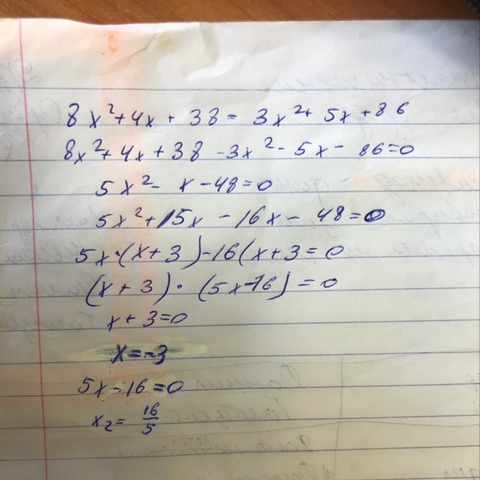 8x²+4x+38=3x²+5x+86
8x²+4x+38-3x²-5x-86=0
5x²-x-48=0
5x²+15x-16x-48=0
5x·(x+3)-16(x+3=0
(x+3)·(5x-16)=0
x+3=0
x=-3
5x-16=0
x₂=16/5